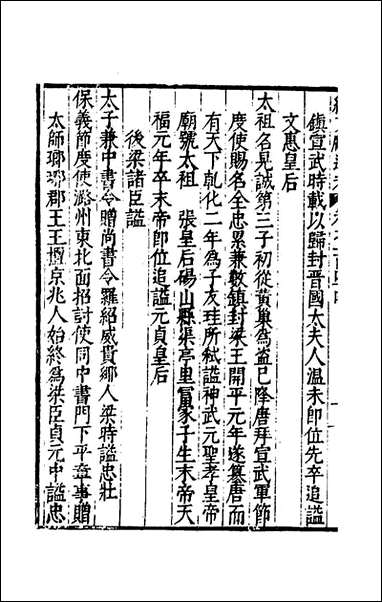 鎮宣武時載以歸封晋國太夫人温未即位先卒追謚
文惠皇后
太祖名晃誠第三子初從黄巢為盗已降唐拜宣武軍節
度使賜名全忠累兼數鎮封梁王開平元年遂簒唐而
有天下乾化二年為子友珪所弑謚神武元聖孝皇帝
廟號太祖 張皇后碭山縣渠亭里富家子生末帝天
福元年卒末帝即位追謚元貞皇后
後梁諸臣謚
太子兼中書令贈尚書令羅紹威貴鄉人梁時謚忠壯
保義節度使潞州東北面招討使同中書門下平章事贈
太師瑯琊郡王王檀京兆人始終為梁臣貞元中謚忠